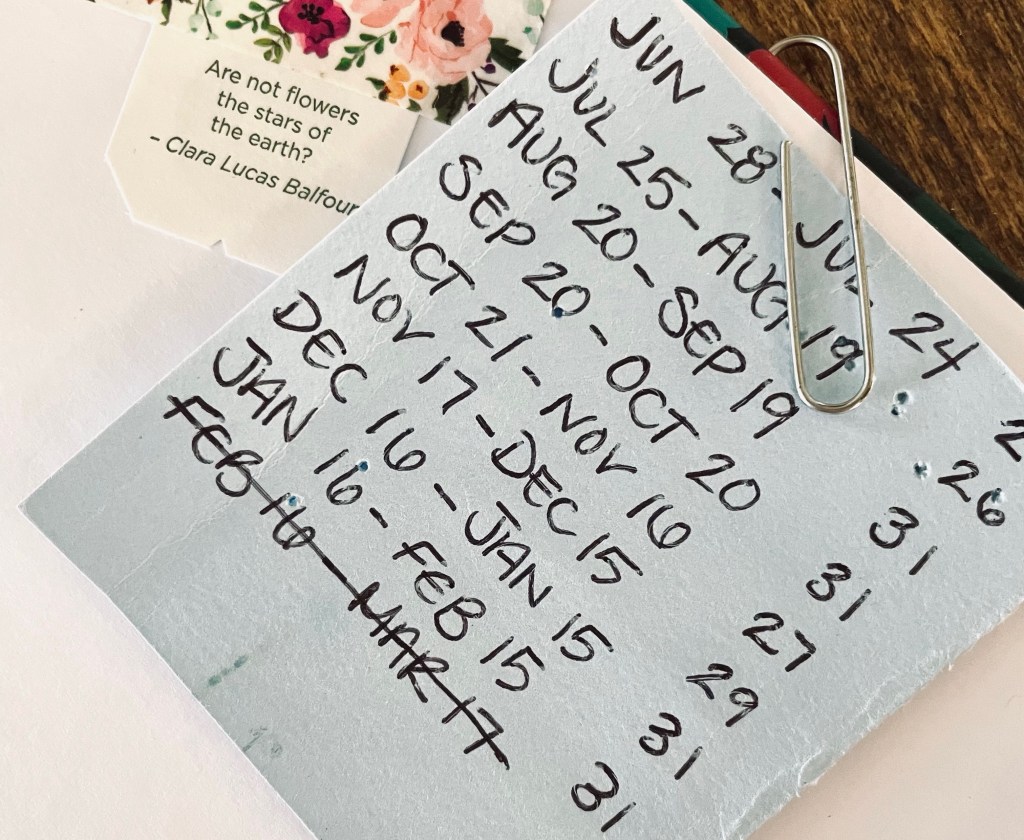 Are not flowers
the stars of
the earth?
- Clara Lucas Balfour
JUN 28 - JUL 24 2
JUL 25 - AUG 19 26
AUG 20 - SEP 19 31
SEP 20 - OCT 20 31
OCT 21 - NOV 16 27
NOV 17 - DEC 15 29
DEC 16 - JAN 15 31
JAN 16 - FEB 15 31
FEB 16 - MAR 17